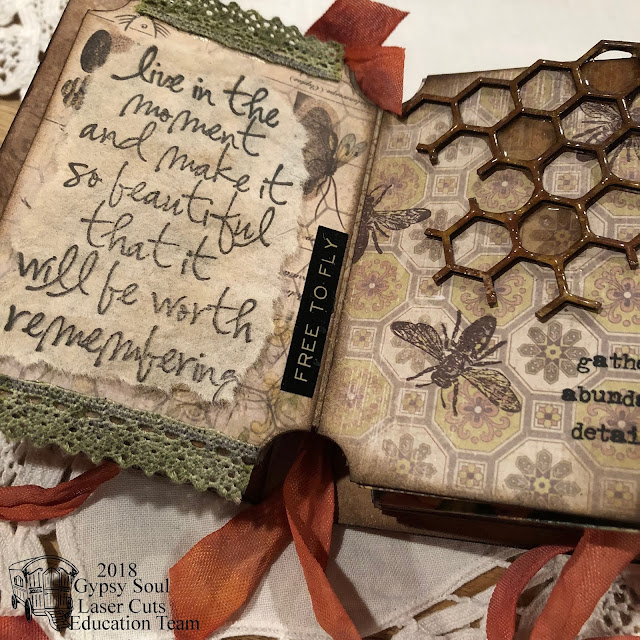 live in the
moment
and make it
so beautiful
that it
will be worth
remembering
FREE TO FLY
2018
Gypsy Soul
Laser Cuts
Education Team